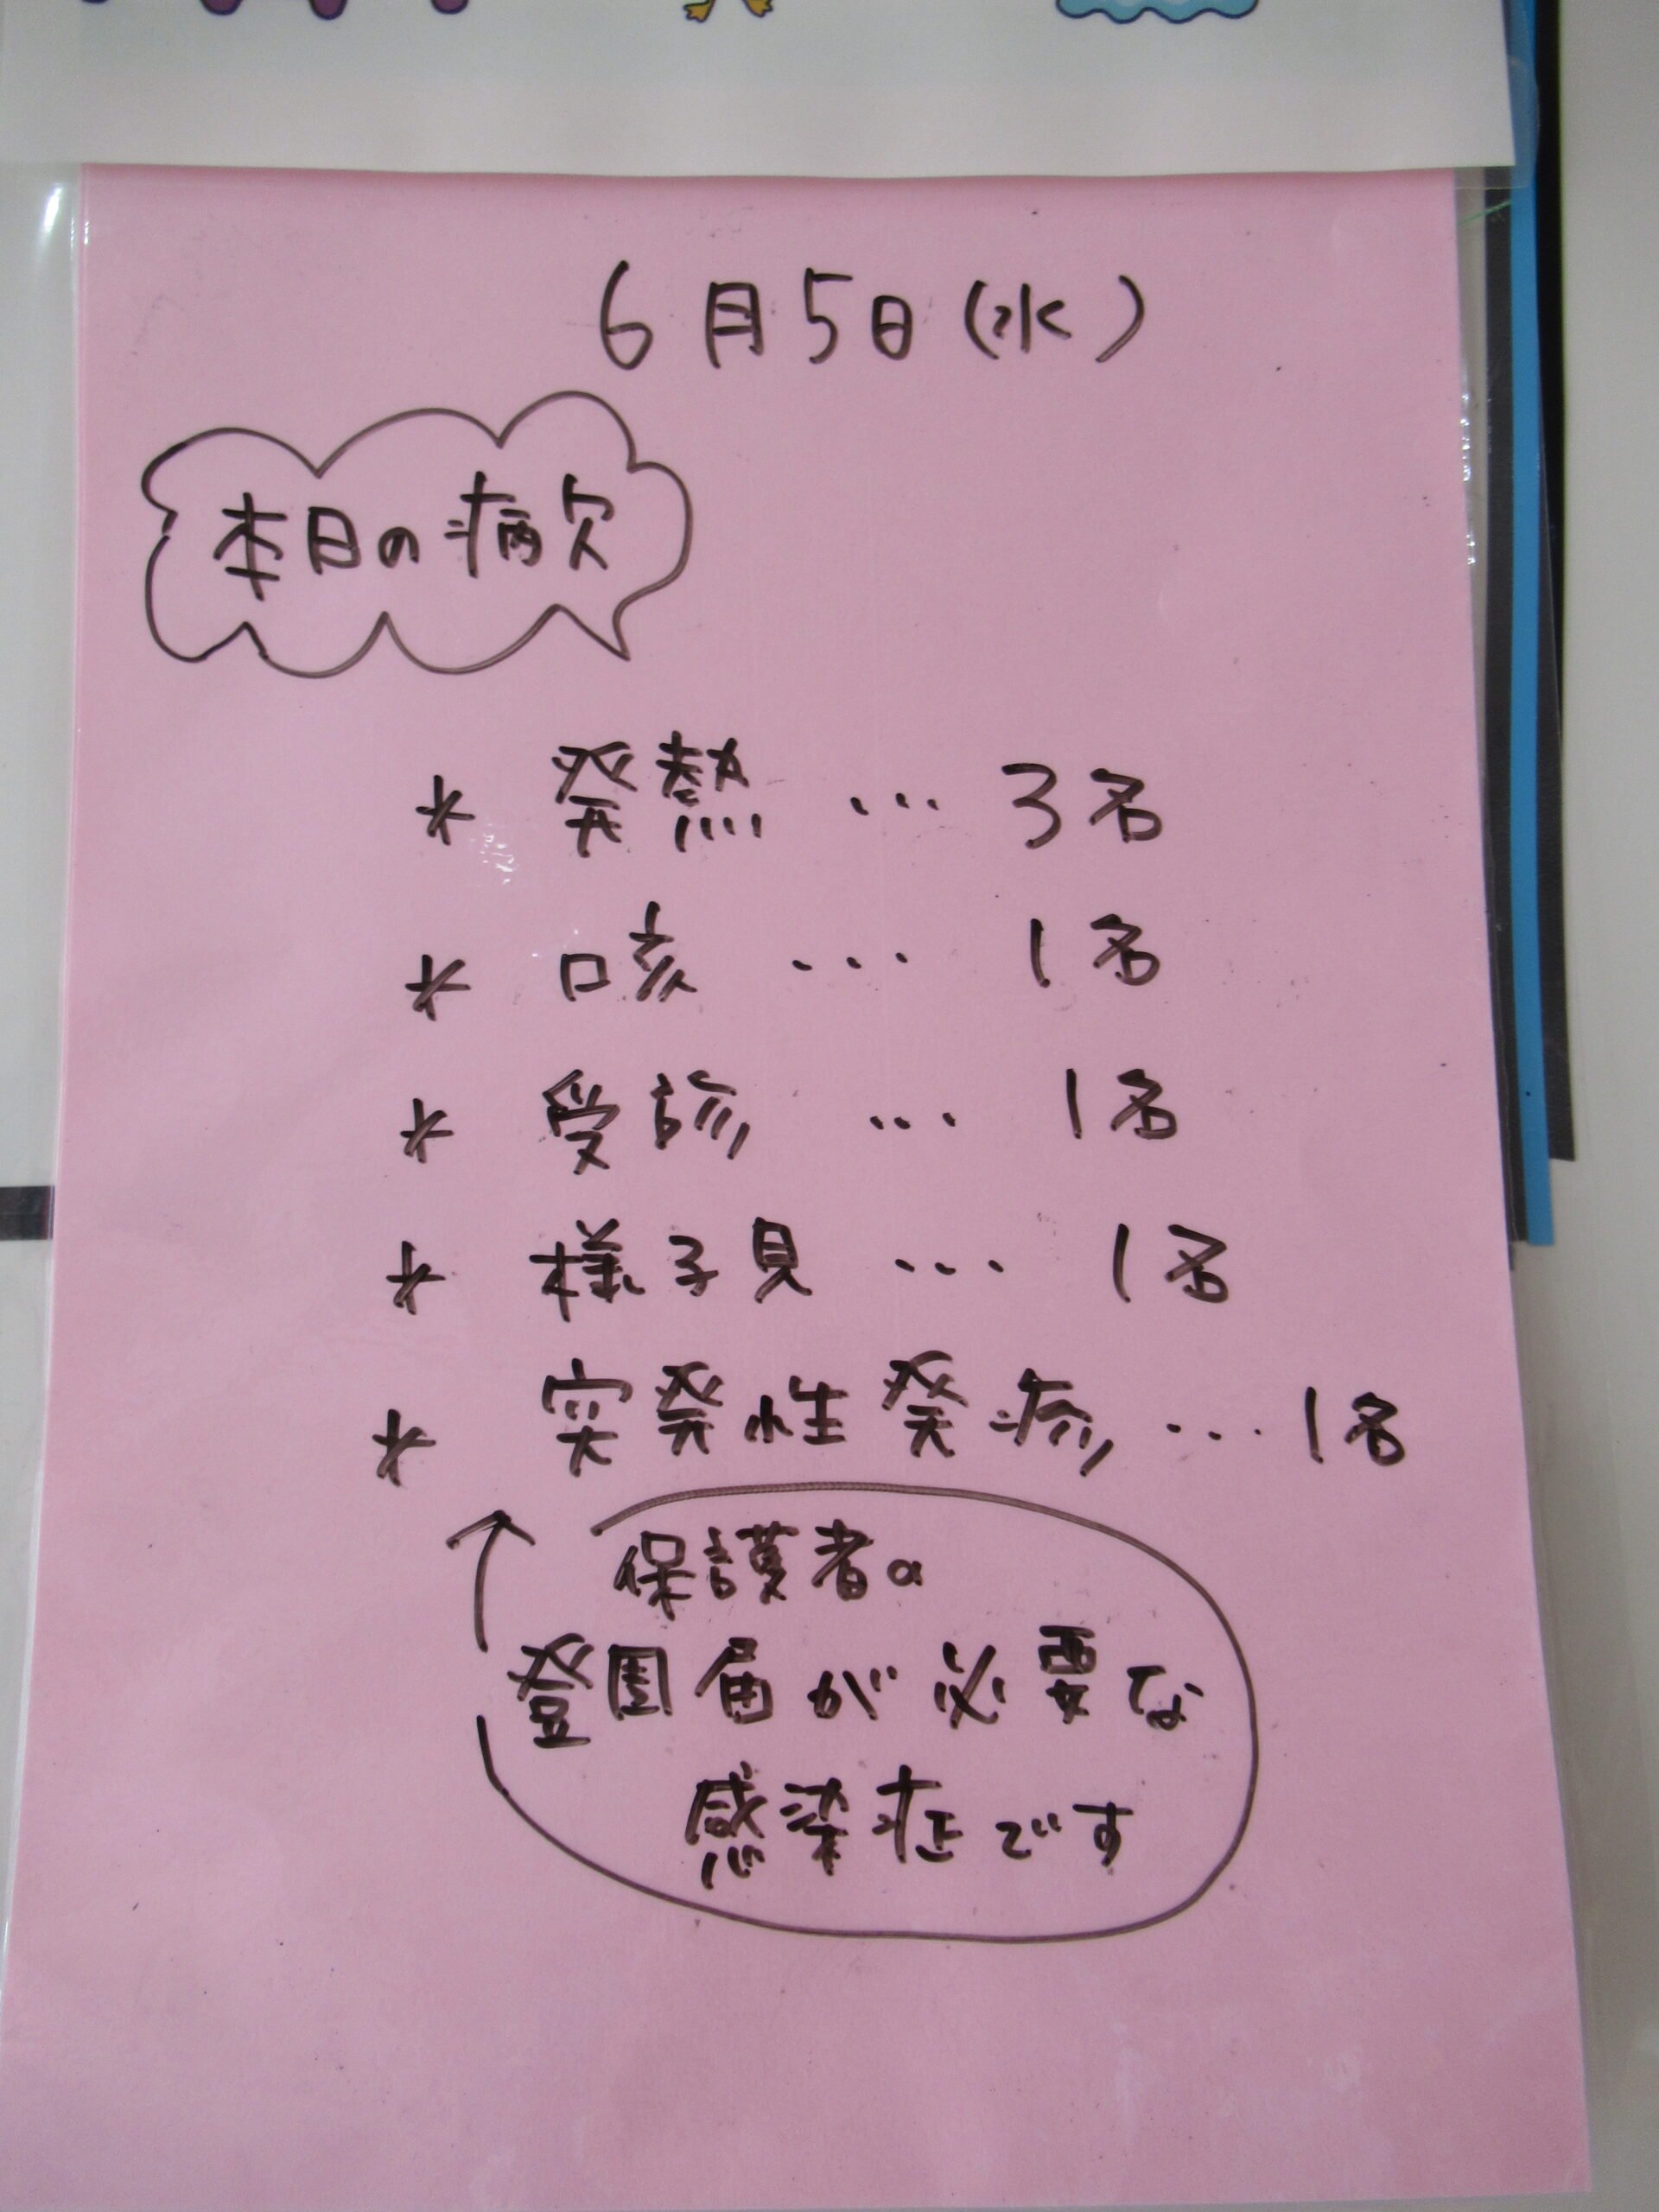 6月5日(水)
本日の病欠
* 発熱 … 3名
* 咳 … 1名
* 受診 … 1名
* 様子見 … 1名
* 突発性発疹 … 1名
保護者の
登園届が必要な
感染症です